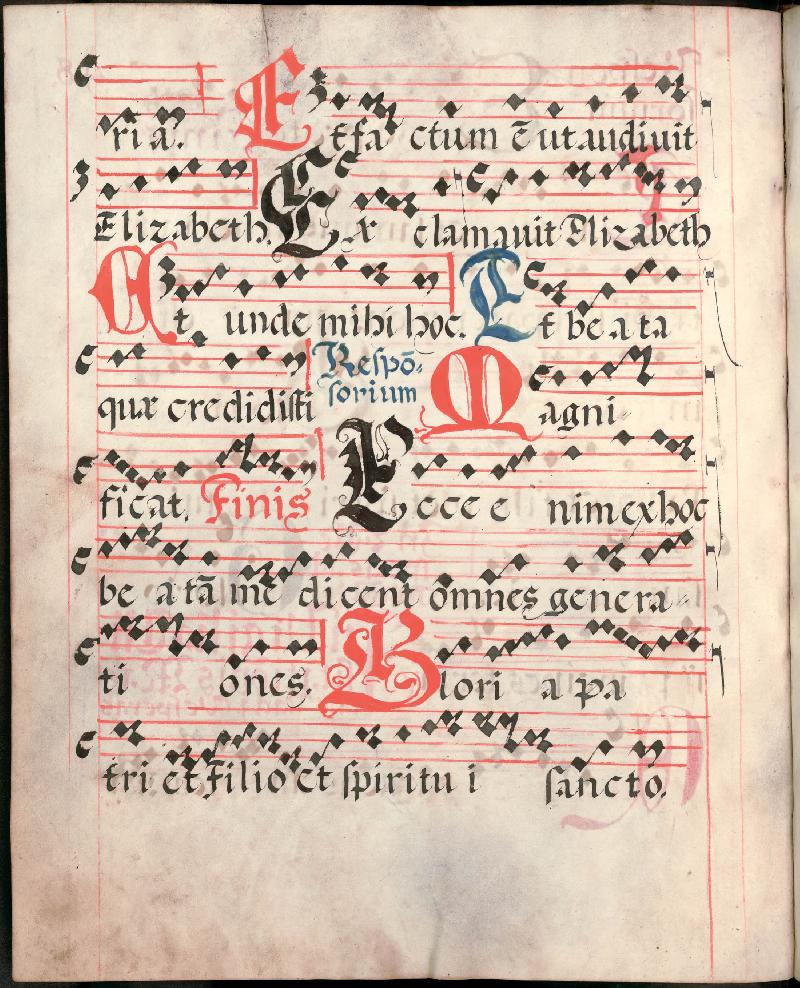 ria. Et fa ctum ē ut audiuit
Elizabeth. Ex clamauit Elizabeth
Et unde mihi hoc. Et be a ta
quæ credidisti Respō-
sorium Magni-
ficat. Finis Ecce e nim ex hoc
be a tā me dicent omnes genera-
ti ones. Glori a pa
tri et Filio et spiritu i sancto.